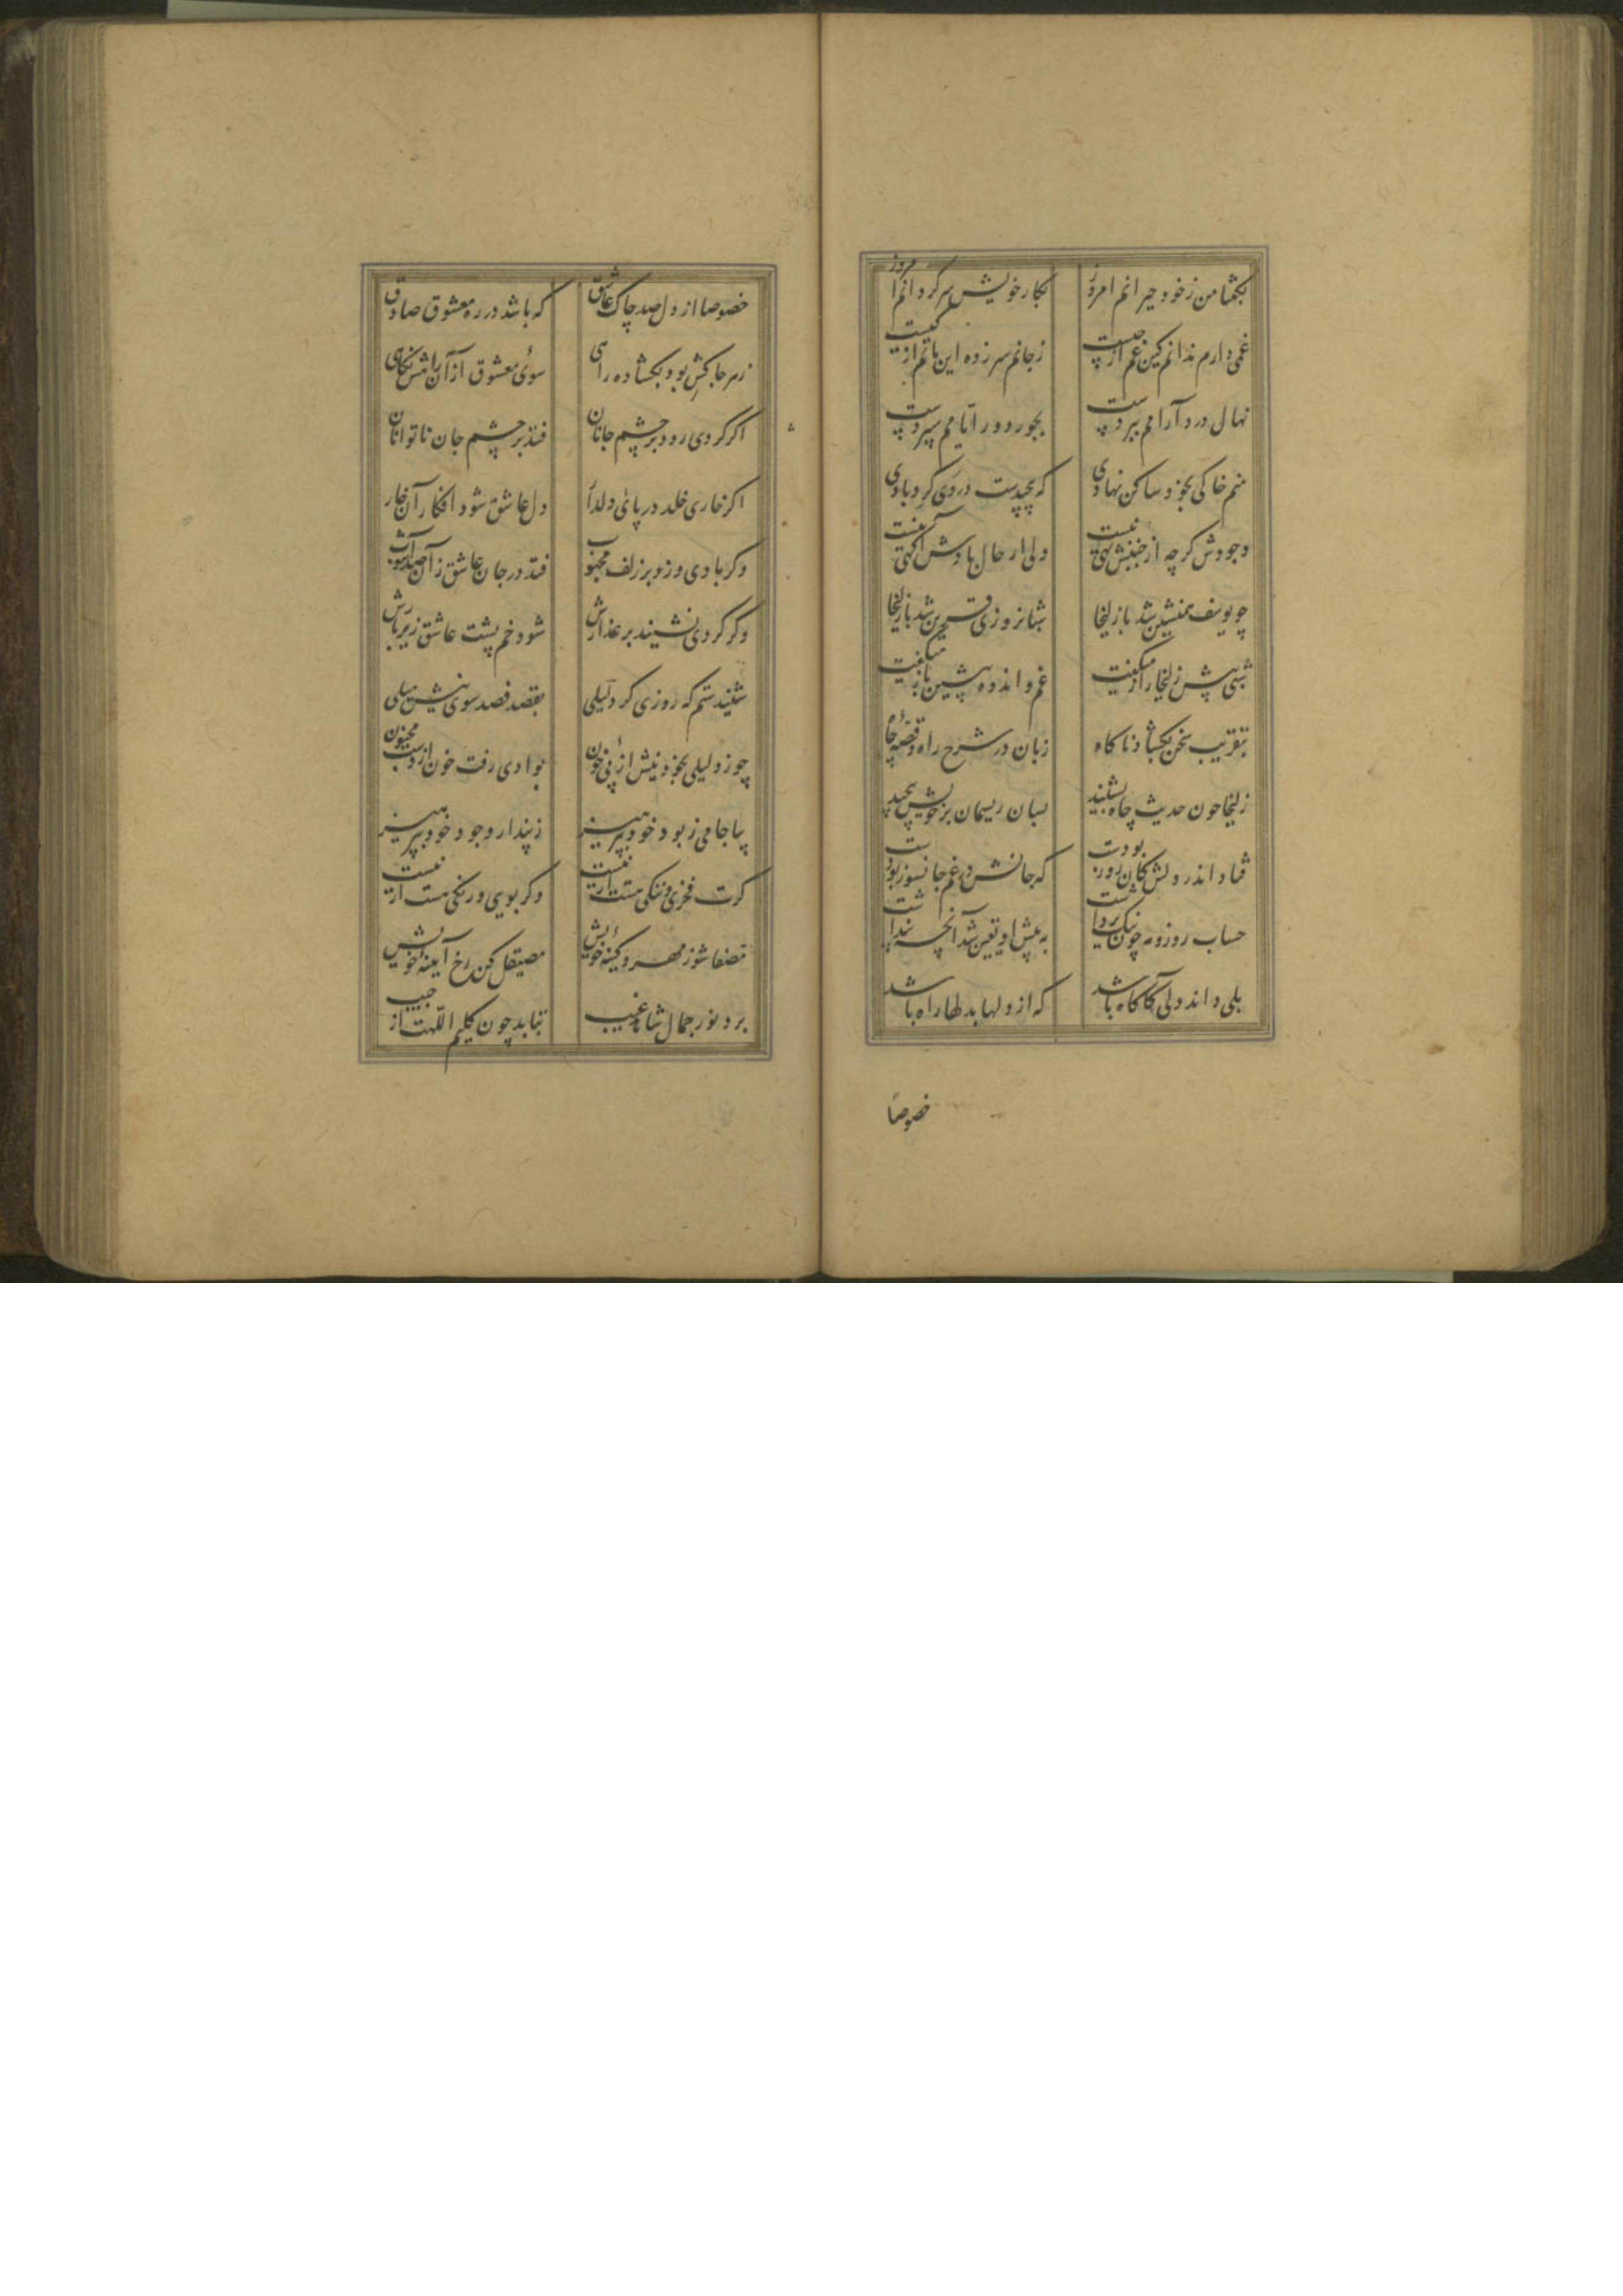 بکفتا من زخود حیرانم امروز بکار خویش سرگردانم امروز
غمی دارم ندانم کین غم از چیست زجانم سرزده این ماتم از کیست
نهال درد آرامم ببردست بجور دور ایامم سپردست
منم خاکی بخود ساکن نهادی که پیچیدست در وی کردبادی
وجودش کرچه از جنبش تهی نیست ولی از حال بادش آکهی نیست
چو یوسف همنشین شد با زلیخا شبانروزی قرین شد با زلیخا
شبی پیش زلیخا راز میکفت غم و اندوه پیشین باز میکفت
بتقریب سخن بکشاد ناکاه زبان در شرح راه و قصهٔ چاه
زلیخا چون حدیث چاه بشنید بسان ریسمان بر خویش پیچید
فتاد اندر دلش کان روز بودست که جانش در غم جانسوز بودست
حساب روز و مه چون نیک برداشت به پیش او یقین شد آنچه پنداشت
بلی داند دلی کاکاه باشد که از دلها بدلها راه باشد
خصوصا
خصوصا از دل صد چاک عاشق که باشد در ره معشوق صادق
زهر چاکش بود بکشاده راهی سوی معشوق از آن راهش نکاهی
اکر کردی رود بر چشم جانان فتد بر چشم جان ناتوانان
اکر خاری خلد در پای دلدار دل عاشق شود افکار آن خار
وکر بادی وزد بر زلف محبوب فتد در جان عاشق زآن صد آشوب
وکر کردی نشیند بر عذارش شود خم پشت عاشق زیر بارش
شنیدستم که روزی کرد لیلی بقصد فصد سوی نیش میلی
چو زد لیلی بخود نیش از پی خون بوادی رفت خون از دست مجنون
بیا جامی ز بود خود بپرهیز ز پندار وجود خود بپرهیز
کرت فخری و ننکی هست از نیست وکر بویی و رنکی هست از نیست
مصفا شو ز مهر و کینهٔ خویش مصیقل کن رخ آیینهٔ خویش
برد نور جمال شاهد غیب بتابد چون کلیم اللهت از جیب